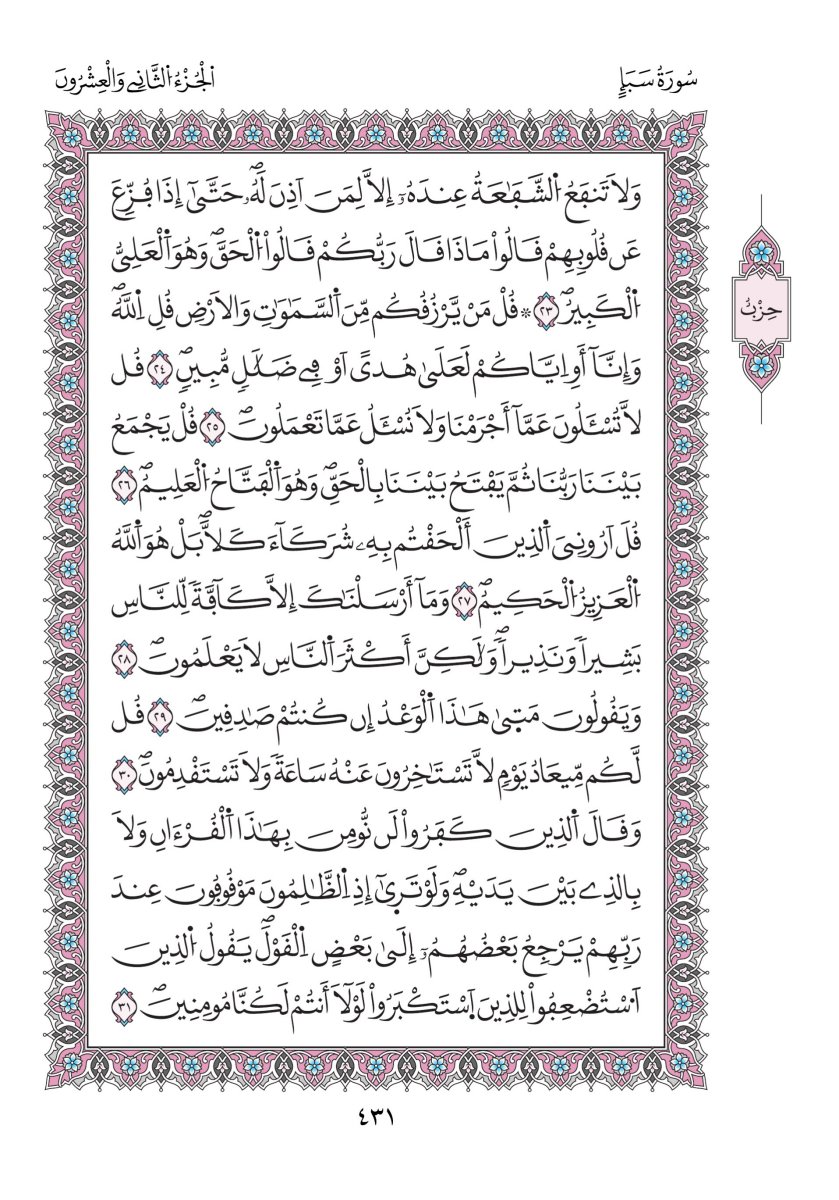 سُورَةُ سَبَإٍ
اَلْجُزْءُ الثَّانِي وَالْعِشْرُونَ
وَلَا تَنفَعُ اُ۬لشَّفَٰعَةُ عِندَهُۥٓ إِلَّا لِمَنَ اَذِنَ لَهُۥۖ حَتَّىٰٓ إِذَا فُزِّعَ
عَن قُلُوبِهِمْ قَالُواْ مَاذَا قَالَ رَبُّكُمْ قَالُواْ اُ۬لْحَقَّۖ وَهُوَ اَ۬لْعَلِيُّ
اُ۬لْكَبِيرُۖ ٢٣ ۞ قُلْ مَنْ يَّرْزُقُكُم مِّنَ اَ۬لسَّمَٰوَٰتِ وَالَارْضِ قُلِ اِ۬للَّهُۖ
وَإِنَّآ أَوِ اِيَّاكُمْ لَعَلَىٰ هُدىً اَوْ فِے ضَلَٰلٖ مُّبِينٖۖ ٢٤ قُل
لَّا تُسْـَٔلُونَ عَمَّآ أَجْرَمْنَا وَلَا نُسْـَٔلُ عَمَّا تَعْمَلُونَۖ ٢٥ قُلْ يَجْمَعُ
بَيْنَنَا رَبُّنَا ثُمَّ يَفْتَحُ بَيْنَنَا بِالْحَقِّۖ وَهُوَ اَ۬لْفَتَّاحُ اُ۬لْعَلِيمُۖ ٢٦
قُلَ اَرُونِيَ اَ۬لذِينَ أَلْحَقْتُم بِهِۦ شُرَكَآءَ كَلَّاۖ بَلْ هُوَ اَ۬للَّهُ
اُ۬لْعَزِيزُ اُ۬لْحَكِيمُۖ ٢٧ وَمَآ أَرْسَلْنَٰكَ إِلَّا كَآفَّةٗ لِّلنَّاسِ
بَشِيراٗ وَنَذِيراٗۖ وَلَٰكِنَّ أَكْثَرَ اَ۬لنَّاسِ لَا يَعْلَمُونَۖ ٢٨
وَيَقُولُونَ مَتَىٰ هَٰذَا اَ۬لْوَعْدُ إِن كُنتُمْ صَٰدِقِينَۖ ٢٩ قُل
لَّكُم مِّيعَادُ يَوْمٖ لَّا تَسْتَٰخِرُونَ عَنْهُ سَاعَةٗ وَلَا تَسْتَقْدِمُونَۖ ٣٠
وَقَالَ اَ۬لذِينَ كَفَرُواْ لَن نُّومِنَ بِهَٰذَا اَ۬لْقُرْءَانِ وَلَا
بِالذِے بَيْنَ يَدَيْهِۖ وَلَوْ تَرَىٰٓ إِذِ اِ۬لظَّٰلِمُونَ مَوْقُوفُونَ عِندَ
رَبِّهِمْ يَرْجِعُ بَعْضُهُمُۥٓ إِلَىٰ بَعْضٍ اِ۬لْقَوْلَۖ يَقُولُ اُ۬لذِينَ
اَ۟سْتُضْعِفُواْ لِلذِينَ اَ۪سْتَكْبَرُواْ لَوْلَآ أَنتُمْ لَكُنَّا مُومِنِينَۖ ٣١
حِزْبٌ
٤٣١